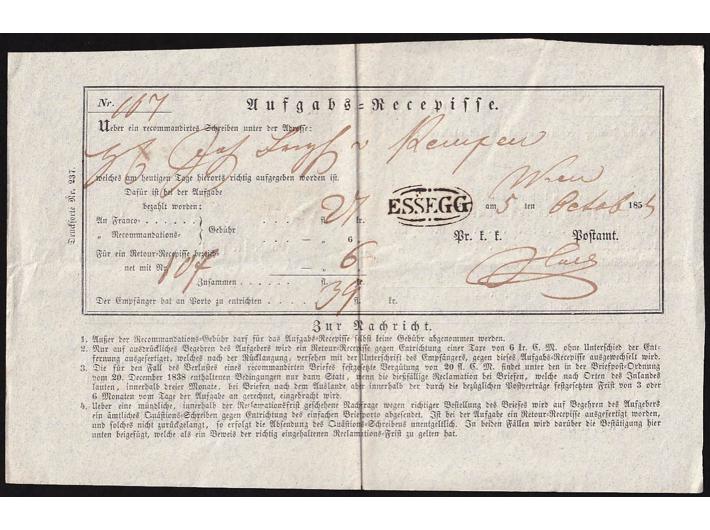 Nr. 167
Aufgabs-Recepisse.
Ueber ein recommandirtes Schreiben unter der Adresse:
v Kempen
welches am heutigen Tage hierorts richtig aufgegeben worden ist. Wien
Dafür ist/hei der Aufgabe
bezahlt worden:
ESSEGG am 5 ten Octob 185
An Franco- fl. 27 kr.
„ Recommandations- Gebühr — „ 6 „
Pr. k. k. Postamt.
Für ein Retour-Recepisse bezeich-
net mit Nr. 107 — „ 6
Zusammen . fl. 39
Der Empfänger hat an Porto zu entrichten . fl. kr.
Druckſorte Nr. 237.
Zur Nachricht.
1. Außer der Recommandations-Gebühr darf für das Aufgabs-Recepisse ſelbſt keine Gebühr abgenommen werden.
2. Nur auf ausdrückliches Begehren des Aufgebers wird ein Retour-Recepisse gegen Entrichtung einer Taxe von 6 kr. C. M. ohne Unterſchied der Ent-
fernung ausgefertigt, welches nach der Rücklangung, verſehen mit der Unterſchrift des Empfängers, gegen dieſes Aufgabs-Recepisse ausgewechſelt wird.
3. Die für den Fall des Verluſtes eines recommandirten Briefes feſtgeſetzte Vergütung von 20 fl. C. M. findet unter den in der Briefpoſt-Ordnung
vom 20. December 1838 enthaltenen Bedingungen nur dann Statt, wenn die dießfällige Reclamation bei Briefen, welche nach Orten des Inlandes
lauten, innerhalb dreier Monate, bei Briefen nach dem Auslande aber innerhalb der durch die bezüglichen Poſtverträge feſtgeſetzten Friſt von 3 oder
6 Monaten vom Tage der Aufgabe an gerechnet, eingebracht wird.
4. Ueber eine mündliche, innerhalb der Reclamationsfriſt geſchehene Nachfrage wegen richtiger Beſtellung des Briefes wird auf Begehren des Aufgebers
ein ämtliches Quäſtions-Schreiben gegen Entrichtung des einfachen Briefporto abgeſendet. Iſt bei der Aufgabe ein Retour-Recepisse ausgefertigt worden,
und ſolches nicht zurückgelangt, ſo erfolgt die Abſendung des Quäſtions-Schreibens unentgeltlich. In beiden Fällen wird darüber die Beſtätigung hier
unten beigefügt, welche als ein Beweis der richtig eingehaltenen Reclamations-Friſt zu gelten hat.